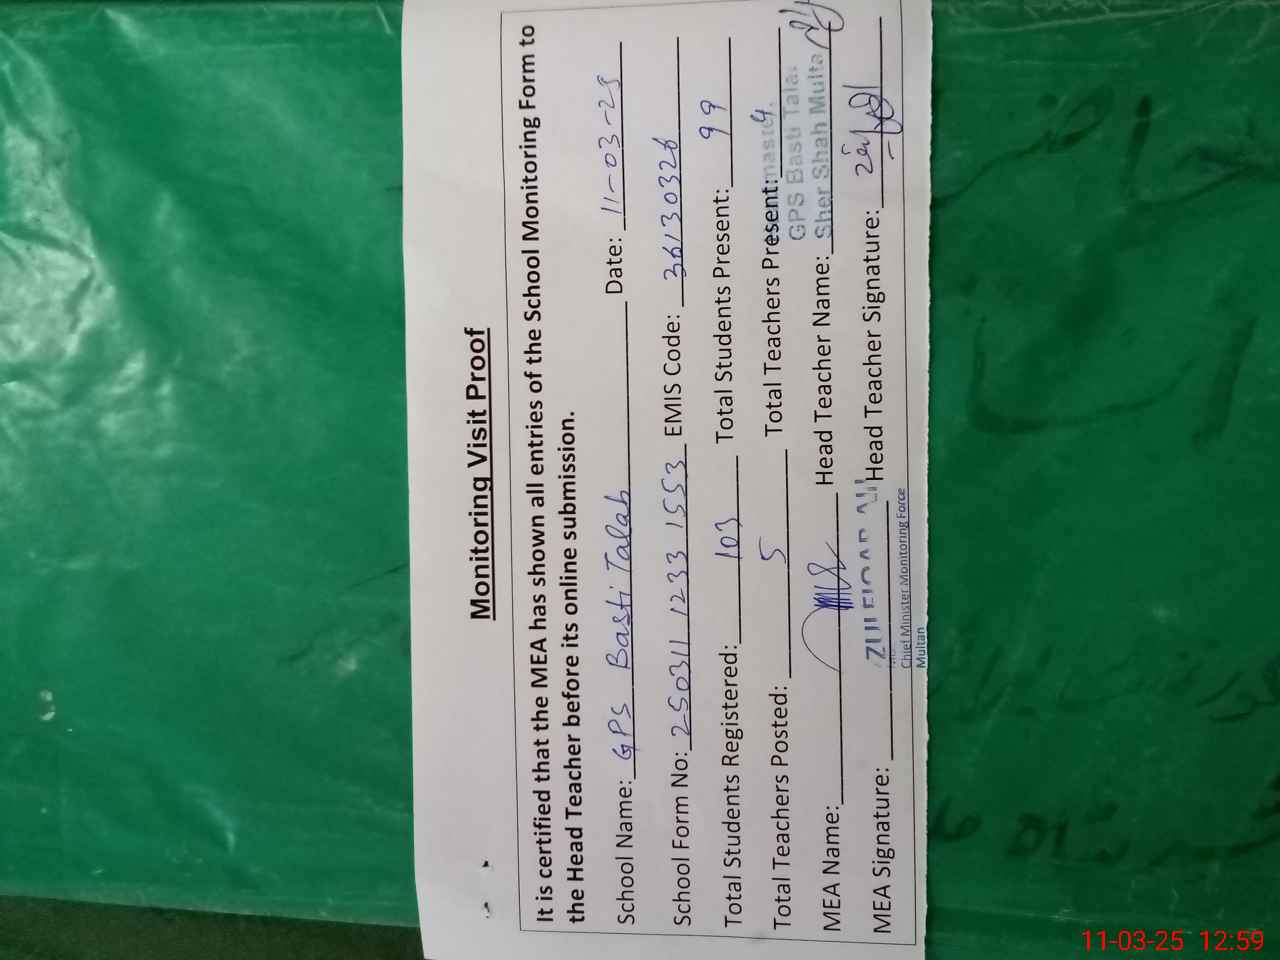 Monitoring Visit Proof
It is certified that the MEA has shown all entries of the School Monitoring Form to
the Head Teacher before its online submission.
School Name: GPS Basti Talab Date: 11-03-25
School Form No: 250311 1233 1553 EMIS Code: 36130326
Total Students Registered: 103 Total Students Present: 99
Total Teachers Posted: 5 Total Teachers Present: 4
GPS Basti Tala
MEA Name: Head Teacher Name: Sher Shah Multa
MEA Signature: Head Teacher Signature:
Chief Minister Monitoring Force
Multan
11-03-25 12:59